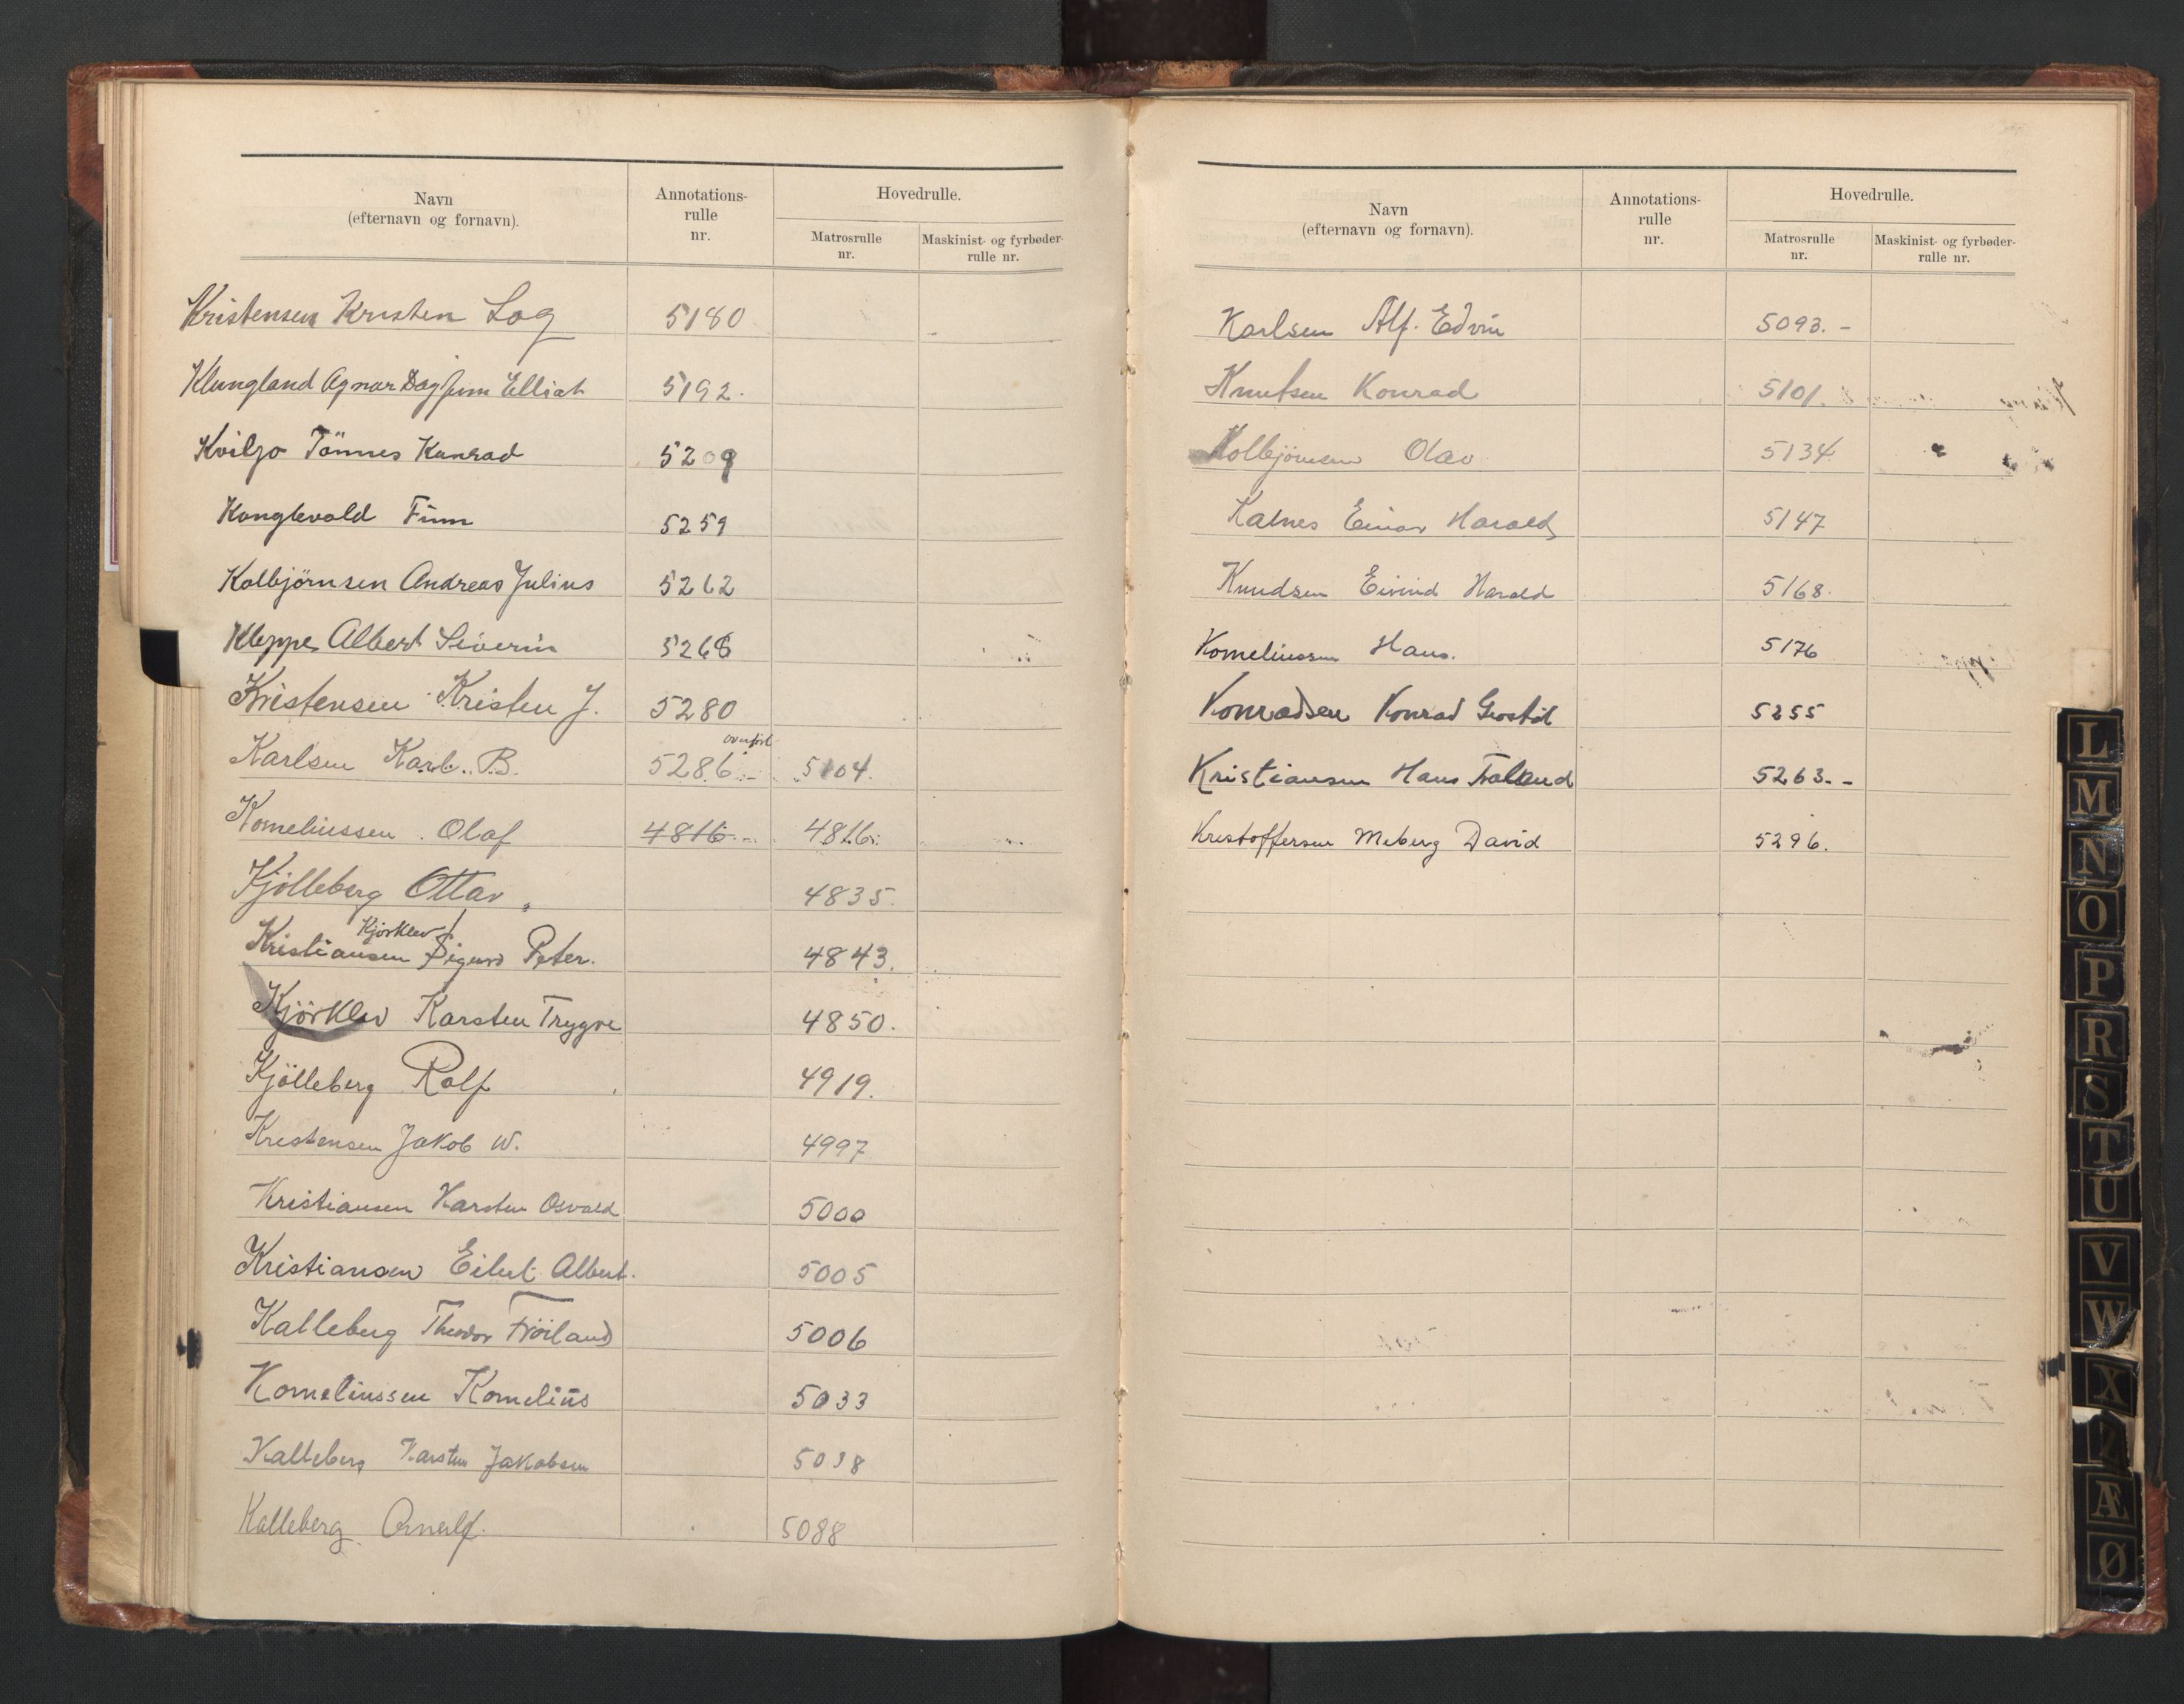 Navn
(efternavn og fornavn).
Annotations-
rulle
nr.
Hovedrulle.
Matrosrulle
nr.
Maskinist- og fyrbøder-
rulle nr.
Kristensen Kristen Log 5180
Klungland Agnar Dagfinn Elliah 5192.
Kviljo Tönnes Kunrad 5209
Konglevold Finn 5259
Kolbjörnsen Andreas Julius 5262
Kleppe Albert Siverin 5268
Kristensen Kristen J. 5280
overført
Karlsen Karl. B. 5286.- 5104.
Korneliussen. Olaf 4816.- 4816.
Kjölleberg Ottar 4835.
Kjørklev
Kristiansen Sigurd Peter. 4843.
Kjörklev Karsten Trygve 4850.
Kjölleberg Rolf 4919.
Kristensen Jakob W. 4997
Kristiansen Karsten Osvald 5000
Kristiansen Eilert Albert. 5005
Kalleberg Theodor Fröiland 5006
Korneliussen Kornelius 5033
Kalleberg Karsten Jakobsen 5038
Kalleberg Arnulf. 5088
Navn
(efternavn og fornavn).
Annotations-
rulle
nr.
Hovedrulle.
Matrosrulle
nr.
Maskinist- og fyrbøder-
rulle nr.
Karlsen Alf. Edvin 5093.-
Knutsen Konrad 5101.
Kolbjörnsen Olav 5134
Kalnes Einar Harald 5147
Knudsen Eivind Harald 5168.
Korneliussen Hans. 5176
Konradsen Konrad 5255
Kristiansen Hans 5263.-
Kristoffersen Meberg David 5296.
L
M
N
O
P
R
S
T
U
V
W
X
Z
Æ
Ø